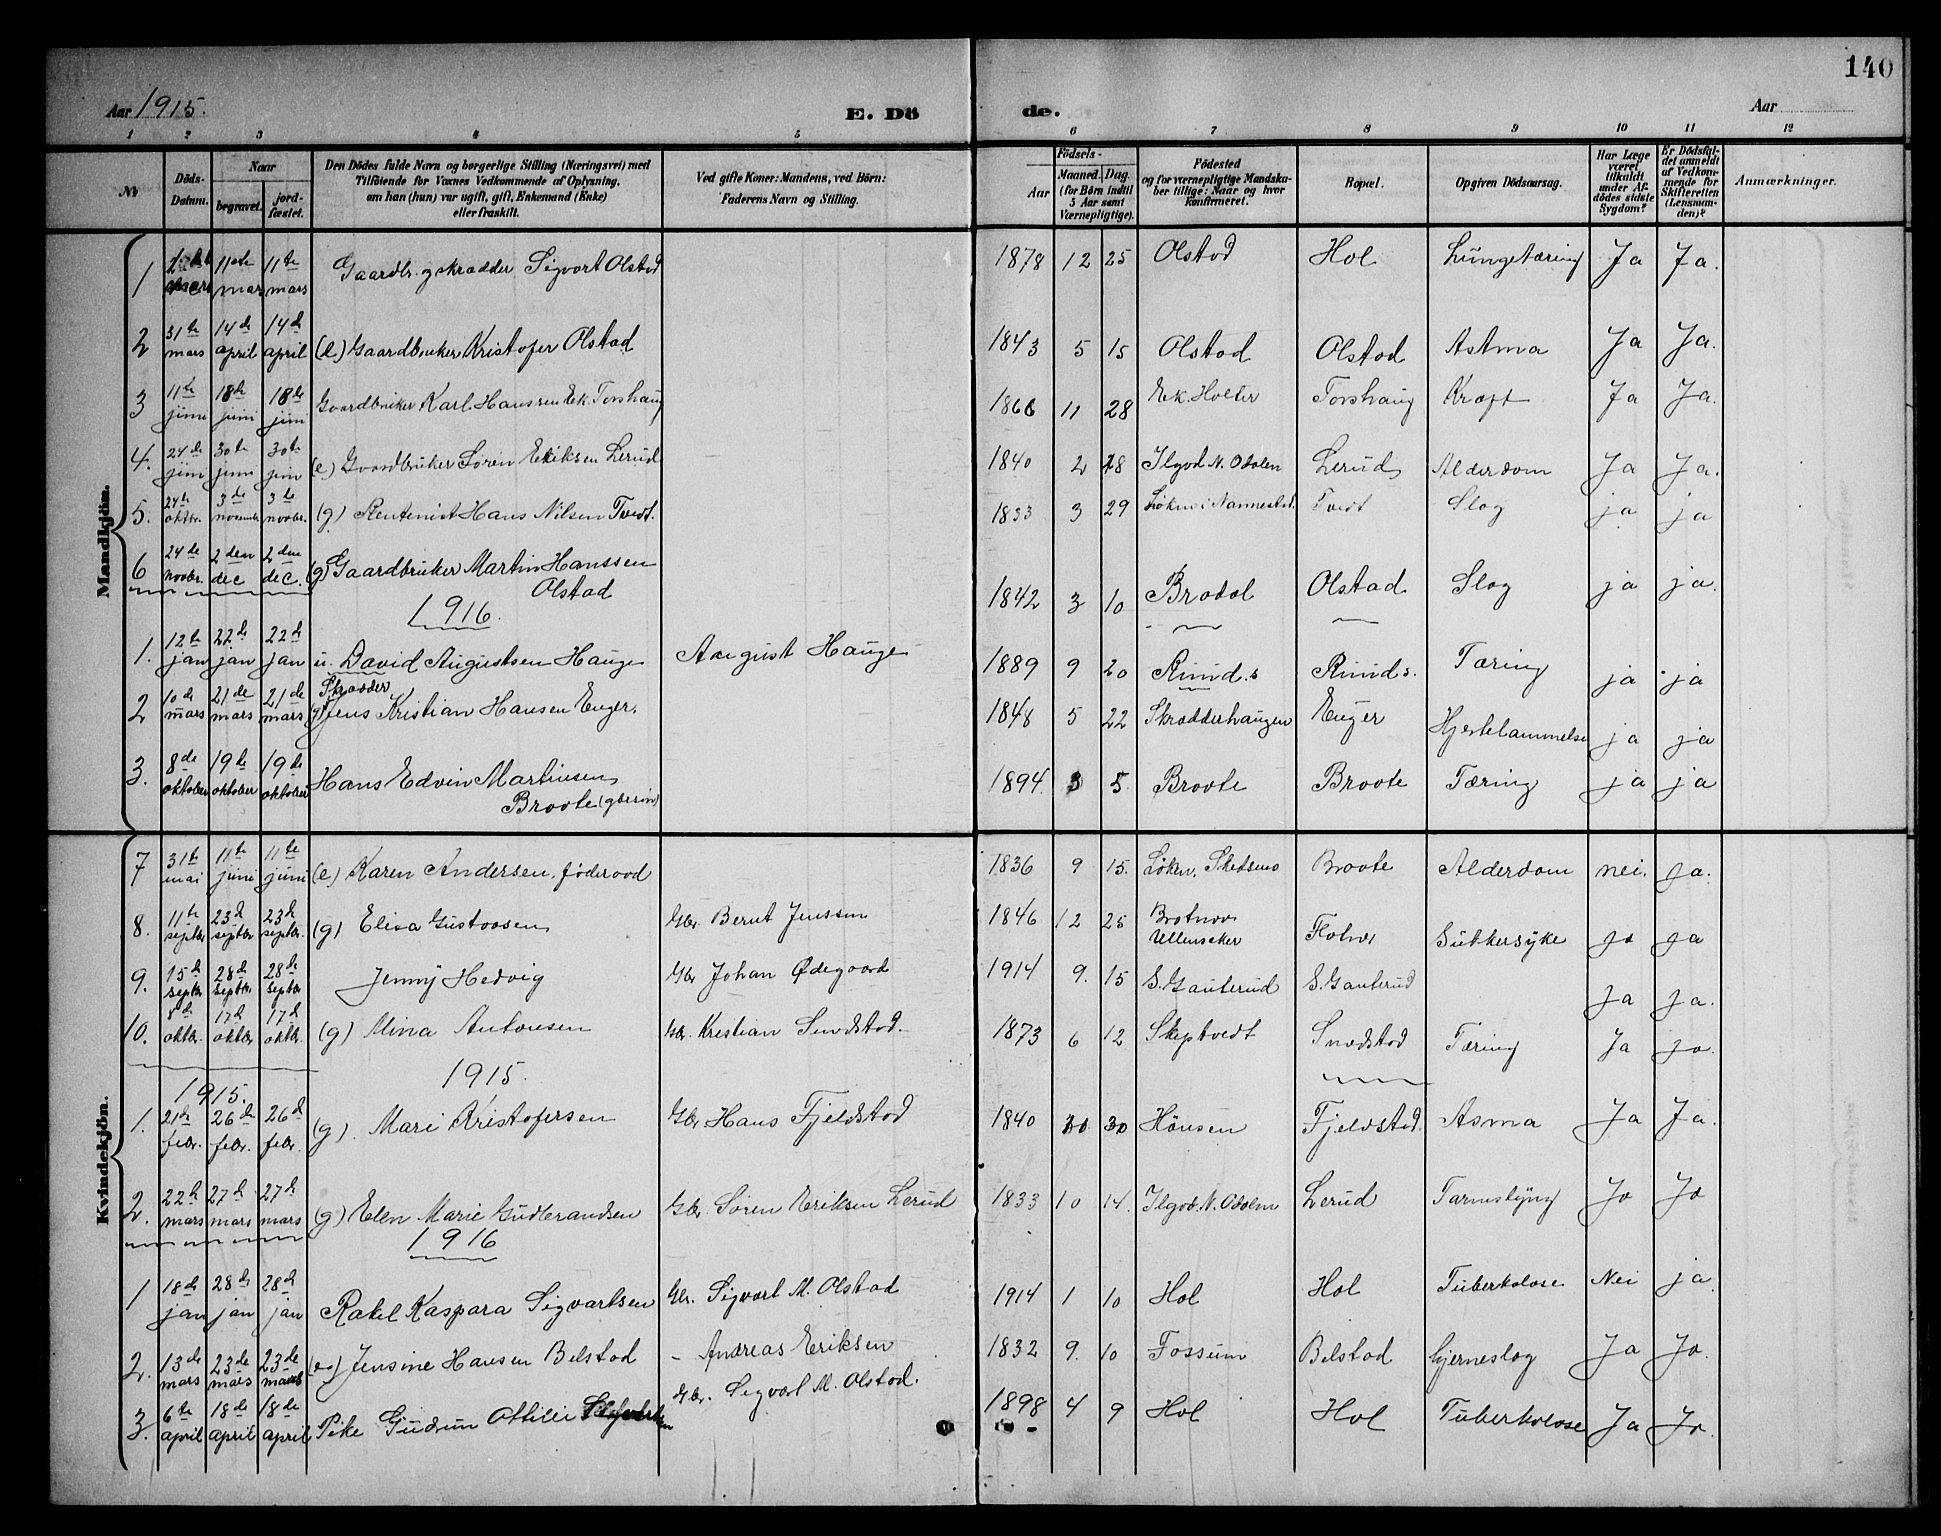 140
Aar 1915.
E. Dö de.
Aar
1 2 3 4 5 6 7 8 9 10 11 12
No
Döds-Datum.
Naar
begravet.
jord-fæstet.
Den Dödes fulde Navn og borgerlige Stilling (Næringsvei) med
Tilföiende for Voxnes Vedkommende af Oplysning,
om han (hun) var ugift, gift, Enkemand (Enke)
eller fraskilt.
Ved gifte Koner: Mandens, ved Börn:
Faderens Navn og Stilling.
Födsels-
Aar
Maaned. Dag
(for Börn indtil
5 Aar samt
Værnepligtige).
Födested
og for værnepligtige Mandska-
ber tillige: Naar og hvor
konfirmeret.
Bopæl.
Opgiven Dödsaarsag.
Har Læge
været
tilkaldt
under Af-
dödes sidste
Sygdom?
Er Dödsfal-
det anmeldt
af Vedkom-
mende for
Skifteretten
(Lensman-
den)?
Anmærkninger.
Mandkjön.
1 mars 11te mars 11te mars Gaardbr. og skrædder Sigvart Olstad 1878 12 25 Olstad Hol Lungetæring Ja Ja.
2 31te mars 14de april 14de april (e) Gaardbruker Kristofer Olstad 1843 5 15 Olstad Olstad Astma Ja Ja.
3 11te juni 18de juni 18de juni Gaardbruker Karl Hanssen Ek. Torshaug 1866 11 28 Ek. Holter Torshaug Kræft Ja Ja.
4. 24de juni 30te juni 30te juni (e) Gaardbruker Søren Eriksen Lerud 1840 2 28 N. Odalen Lerud Alderdom Ja Ja.
5. 24de oktbr. 3de novembr. 3de novbr. (g) Rentenist Hans Nilsen Tvedt. 1833 3 29 Løkne i Nannestad. Tvedt Slag ja ja
6 24de novbr. 2den dec 2den dec. (g) Gaardbruker Martin Hanssen
Olstad 1842 3 10 Brodal Olstad Slag ja ja.
1916.
1. 12te jan 22de jan 22de jan u. David Augustsen Hauge August Hauge 1889 9 20 Rund.s Rund s. Tæring ja ja
2 10de mars 21de mars 21de mars Skrædder
(g) Jens Kristian Hansen Enger. 1848 5 22 Skrædderhaugen Enger Hjertelammelse ja ja
3. 8de oktober 19de oktober 19de oktober Hans Edvin Martinsen
Braate 1894. 3 5. Braate Braate Tæring ja ja
Kvindekjön.
7 31te mai 11te juni 11te juni (e) Karen Andersen, føderaad 1836 9 15. Løken, Skedsmo Braate Alderdom nei. ja.
8. 11te septbr 23d septbr 23d septbr. (g) Elisa Gustavsen Gbr. Bernt Jenssen 1846 12 25 Ullensaker Sukkersyke ja ja
9. 15de septbr 28de septbr 28de septbr Jenny Hedvig Gbr Johan Ødegaard 1914 9. 15 S. Gauterud S. Gauterud ja ja.
10. 8de oktbr. 17d oktbr 17d oktbr. (g) Mina Antonsen Gbr. Kristian Sundstad. 1873 6 12 Skiptvedt Sundstad Tæring Ja ja.
1915.
1915.
1. 21de febr. 26de febr. 26de febr. (g). Mari Kristofersen Gbr. Hans Fjeldstad 1840 30 Hønsen Fjeldstad. Asma Ja Ja.
2. 22d mars 27d mars 27d mars (g) Elen Marie Gudbrandsen Gbr. Søren Eriksen Lerud 1833 10 14. N. Odalen Lerud Tarmeslyng Ja Ja
1916
1 18de jan 28de jan 28de jan Rakel Kaspara Sigvartsen Gbr. Sigvart M. Olstad 1914 1 10 Hol Hol Tuberkolose Nei ja.
2. 13de mars 23de mars 23de mars Jensine Hansen Belstad - Andreas Eriksen 1832 9. 10 Fossum Belstad hjerneslag Ja Ja.
3. 6te april 18de april 18de april Pike Gudrun Ottilie Gbr. Sigvart M. Olstad. 1898 4 9 Hol Hol Tuberkolose Ja Ja.